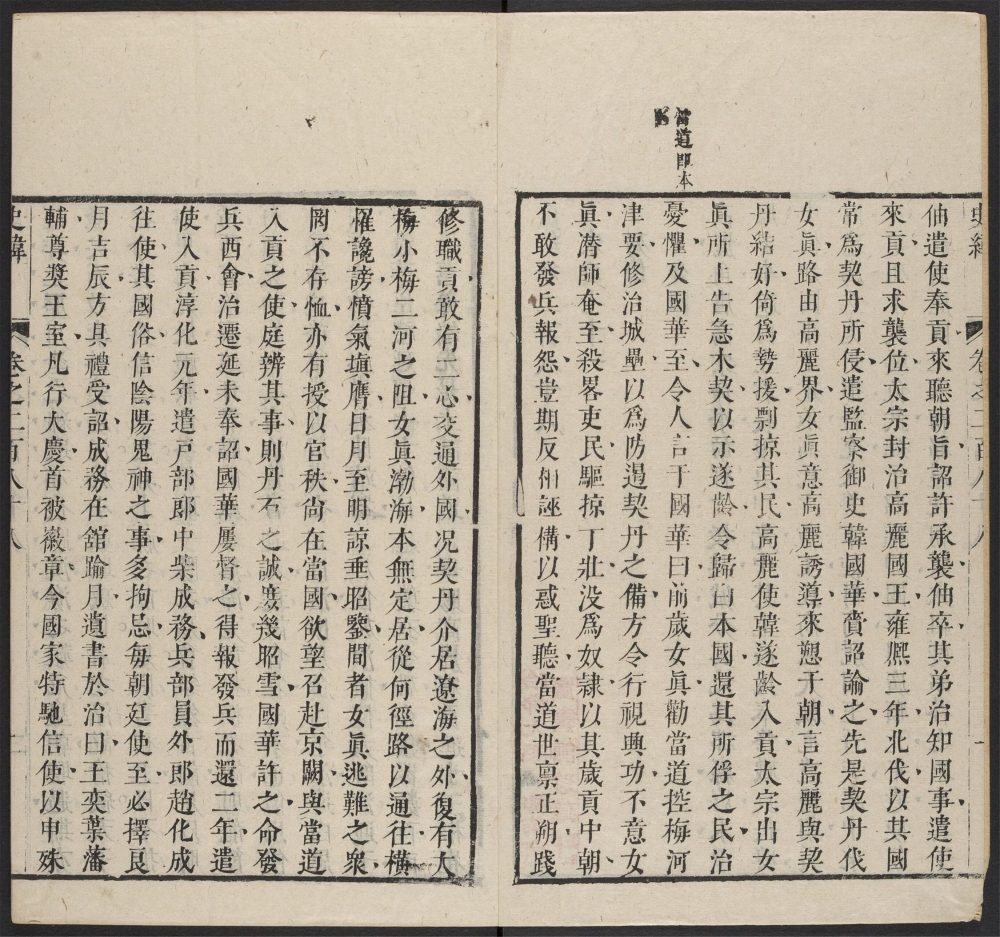 當道即本
史緯
卷之二百八十八
一
伷遣使奉貢來聽朝旨詔許承襲伷卒其弟治知國事遣使
來貢且求襲位太宗封治高麗國王雍熙三年北伐以其國
常爲契丹所侵遣監察御史韓國華賫詔諭之先是契丹伐
女眞路由高麗界女眞意高麗誘導來愬于朝言高麗與契
丹結好倚爲勢援剽掠其民高麗使韓遂齡入貢太宗出女
眞所上告急木契以示遂齡令歸白本國還其所俘之民治
憂懼及國華至令人言于國華曰前歲女眞勸當道控梅河
津要修治城壘以爲防遏契丹之備方令行視興功不意女
眞潜師奄至殺畧吏民驅掠丁壯没爲奴隸以其歲貢中朝
不敢發兵報怨豈期反相誣構以惑聖聽當道世禀正朔踐
修職貢敢有二心交通外國况契丹介居遼海之外復有大
梅小梅二河之阻女眞渤海本無定居從何徑路以通往橫
罹讒謗憤氣塡膺日月至明諒垂昭鑒間者女眞逃難之衆
罔不存恤亦有授以官秩尙在當國欲望召赴京闕與當道
入貢之使庭辨其事則丹石之誠憂幾昭雪國華許之命發
兵西會治遷延未奉詔國華屢督之得報發兵而還二年遣
使入貢淳化元年遣戸部郎中柴成務兵部員外郎趙化成
往使其國俗信陰陽鬼神之事多拘忌每朝廷使至必擇良
月吉辰方具禮受詔成務在舘踰月遺書於治曰王奕葉藩
輔尊奬王室凡行大慶首被徽章今國家特馳信使以申殊
史緯
卷之二百八十八